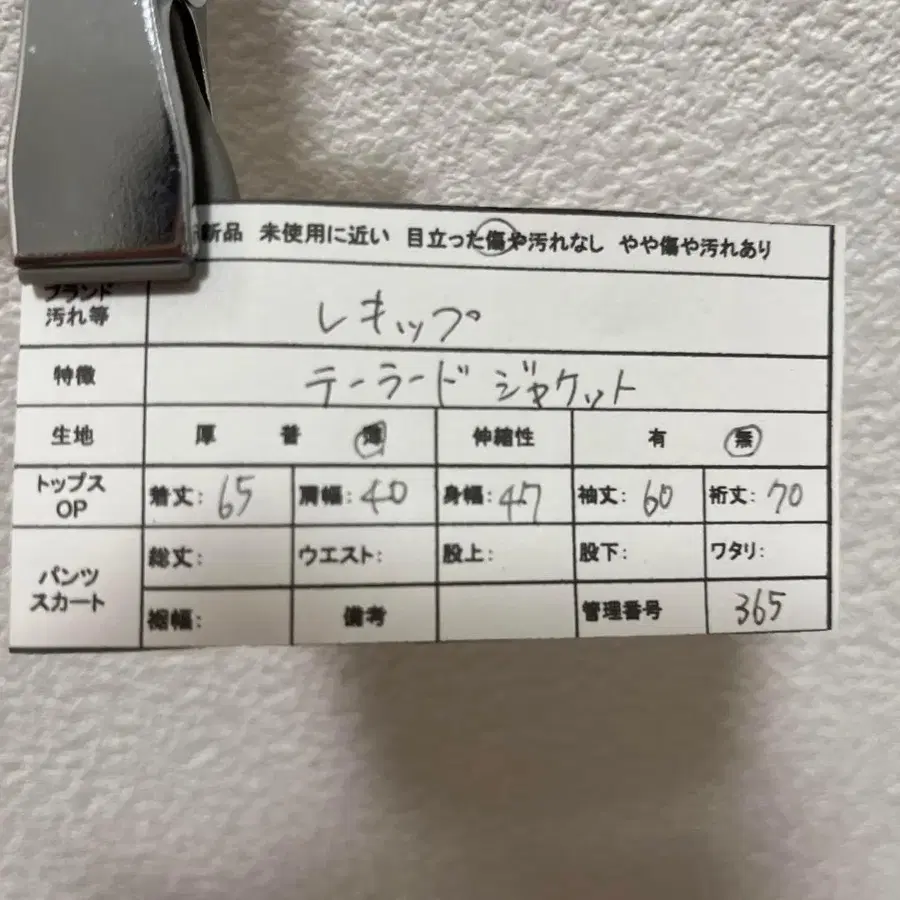 新品 未使用に近い 目立った傷や汚れなし やや傷や汚れあり
ブランド
汚れ等
レキップ
特徴 テーラードジャケット
生地 厚 普 薄 伸縮性 有 無
トップス
OP
着丈: 65 肩幅: 40 身幅: 47 袖丈: 60 裄丈: 70
パンツ
スカート
総丈: ウエスト: 股上: 股下: ワタリ:
裾幅: 備考 管理番号 365